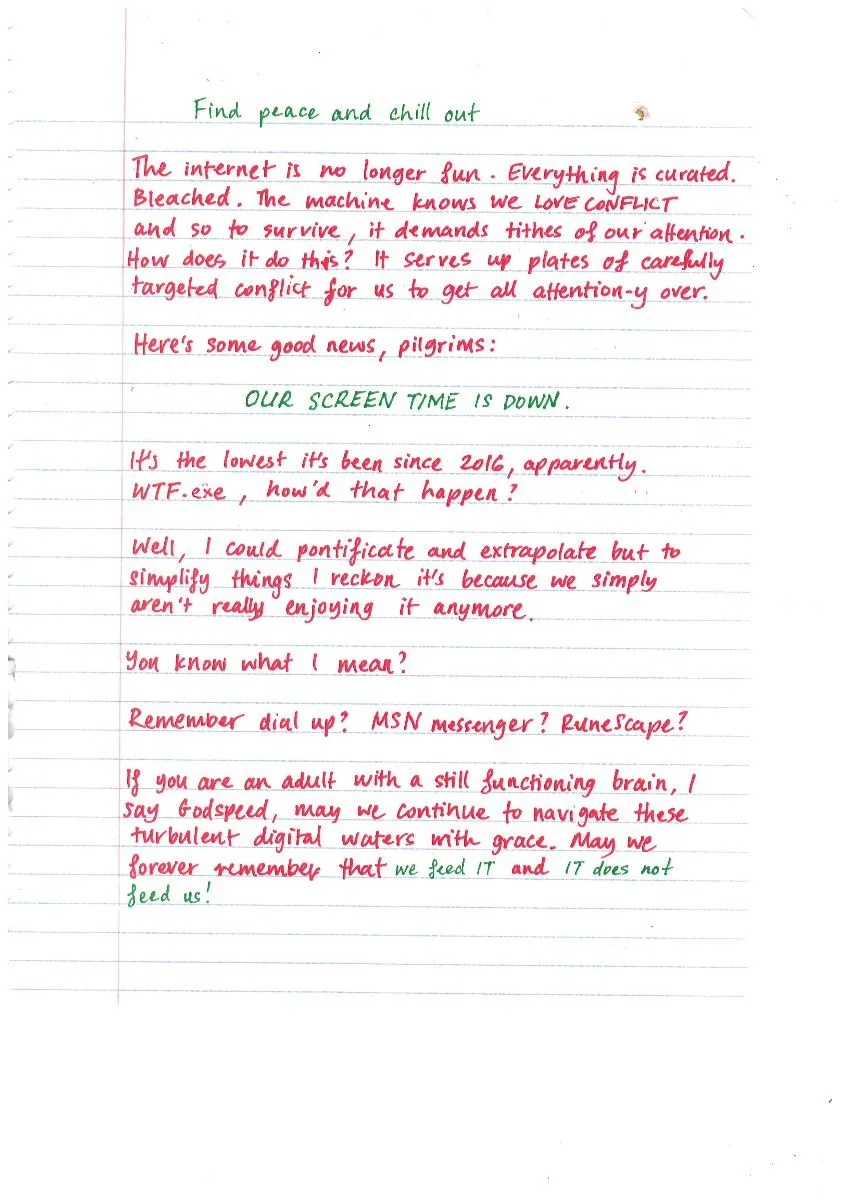 Find peace and chill out
The internet is no longer fun. Everything is curated.
Bleached. The machine knows we LOVE CONFLICT
and so to survive, it demands tithes of our attention.
How does it do this? It serves up plates of carefully
targeted conflict for us to get all attention-y over.
Here's some good news, pilgrims:
OUR SCREEN TIME IS DOWN.
It's the lowest it's been since 2016, apparently.
WTF.exe, how'd that happen?
Well, I could pontificate and extrapolate but to
simplify things I reckon it's because we simply
aren't really enjoying it anymore.
You know what I mean?
Remember dial up? MSN messenger? RuneScape?
If you are an adult with a still functioning brain, I
say Godspeed, may we continue to navigate these
turbulent digital waters with grace. May we
forever remember that we feed IT and IT does not
feed us!